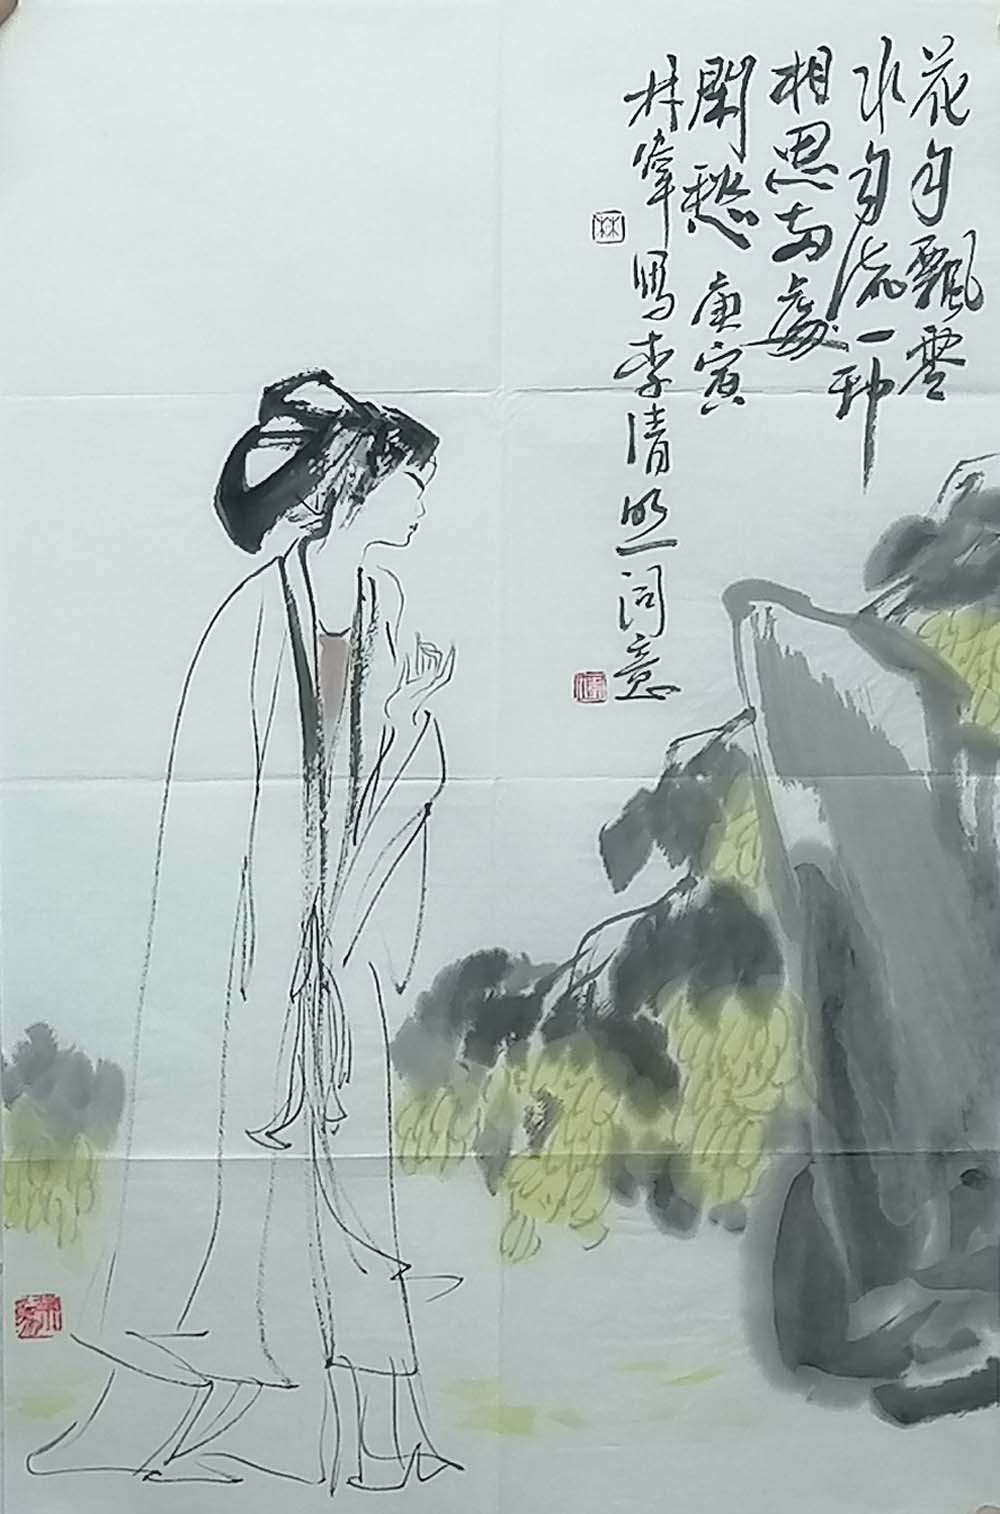 花自飄零
水自流一种
相思两處
閑愁 庚寅
林峰寫李清照词意
林